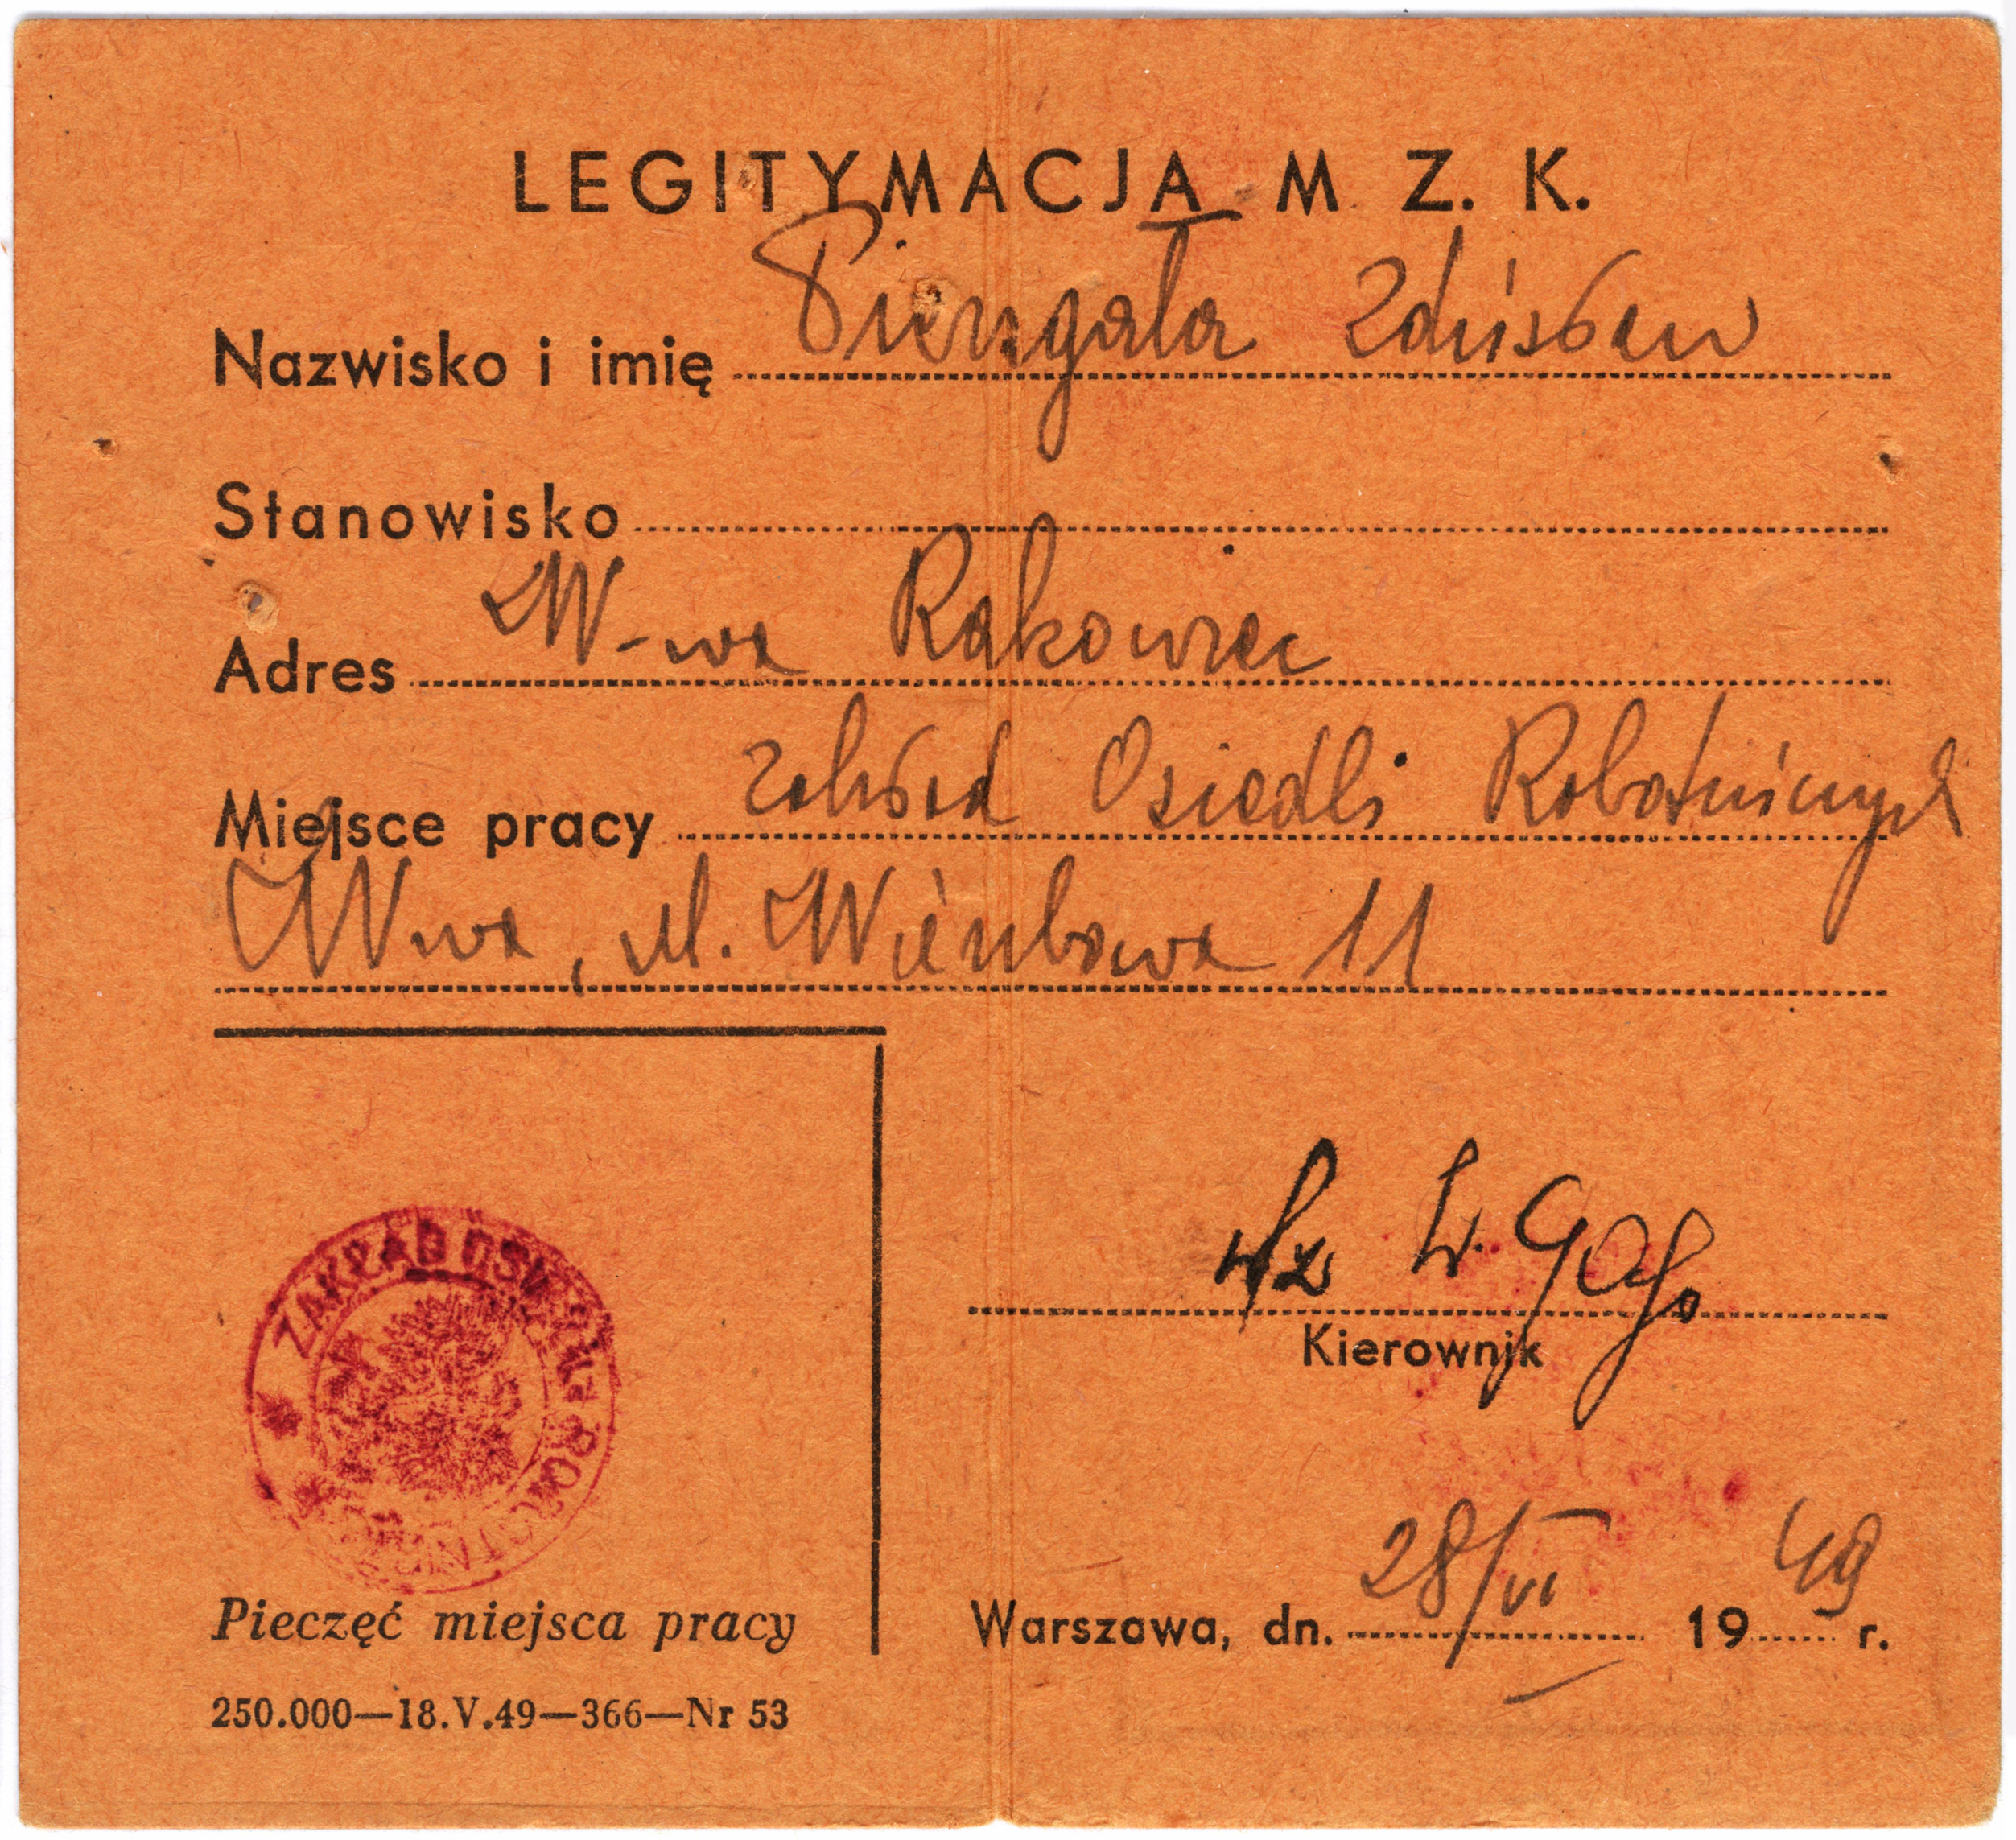 LEGITYMACJA M. Z. K.
Nazwisko i imię Piengała Zdzisław
Stanowisko
Adres W-wa Rakowiec
Miejsce pracy Zakład Osiedli Robotniczych
W-wa, ul. Wierzbowa 11
ZAKŁAD OSIEDLI ROBOTNICZYCH
wz
Kierownik
Warszawa, dn. 28/VI 1949 r.
Pieczęć miejsca pracy
250.000—18.V.49—366—Nr 53